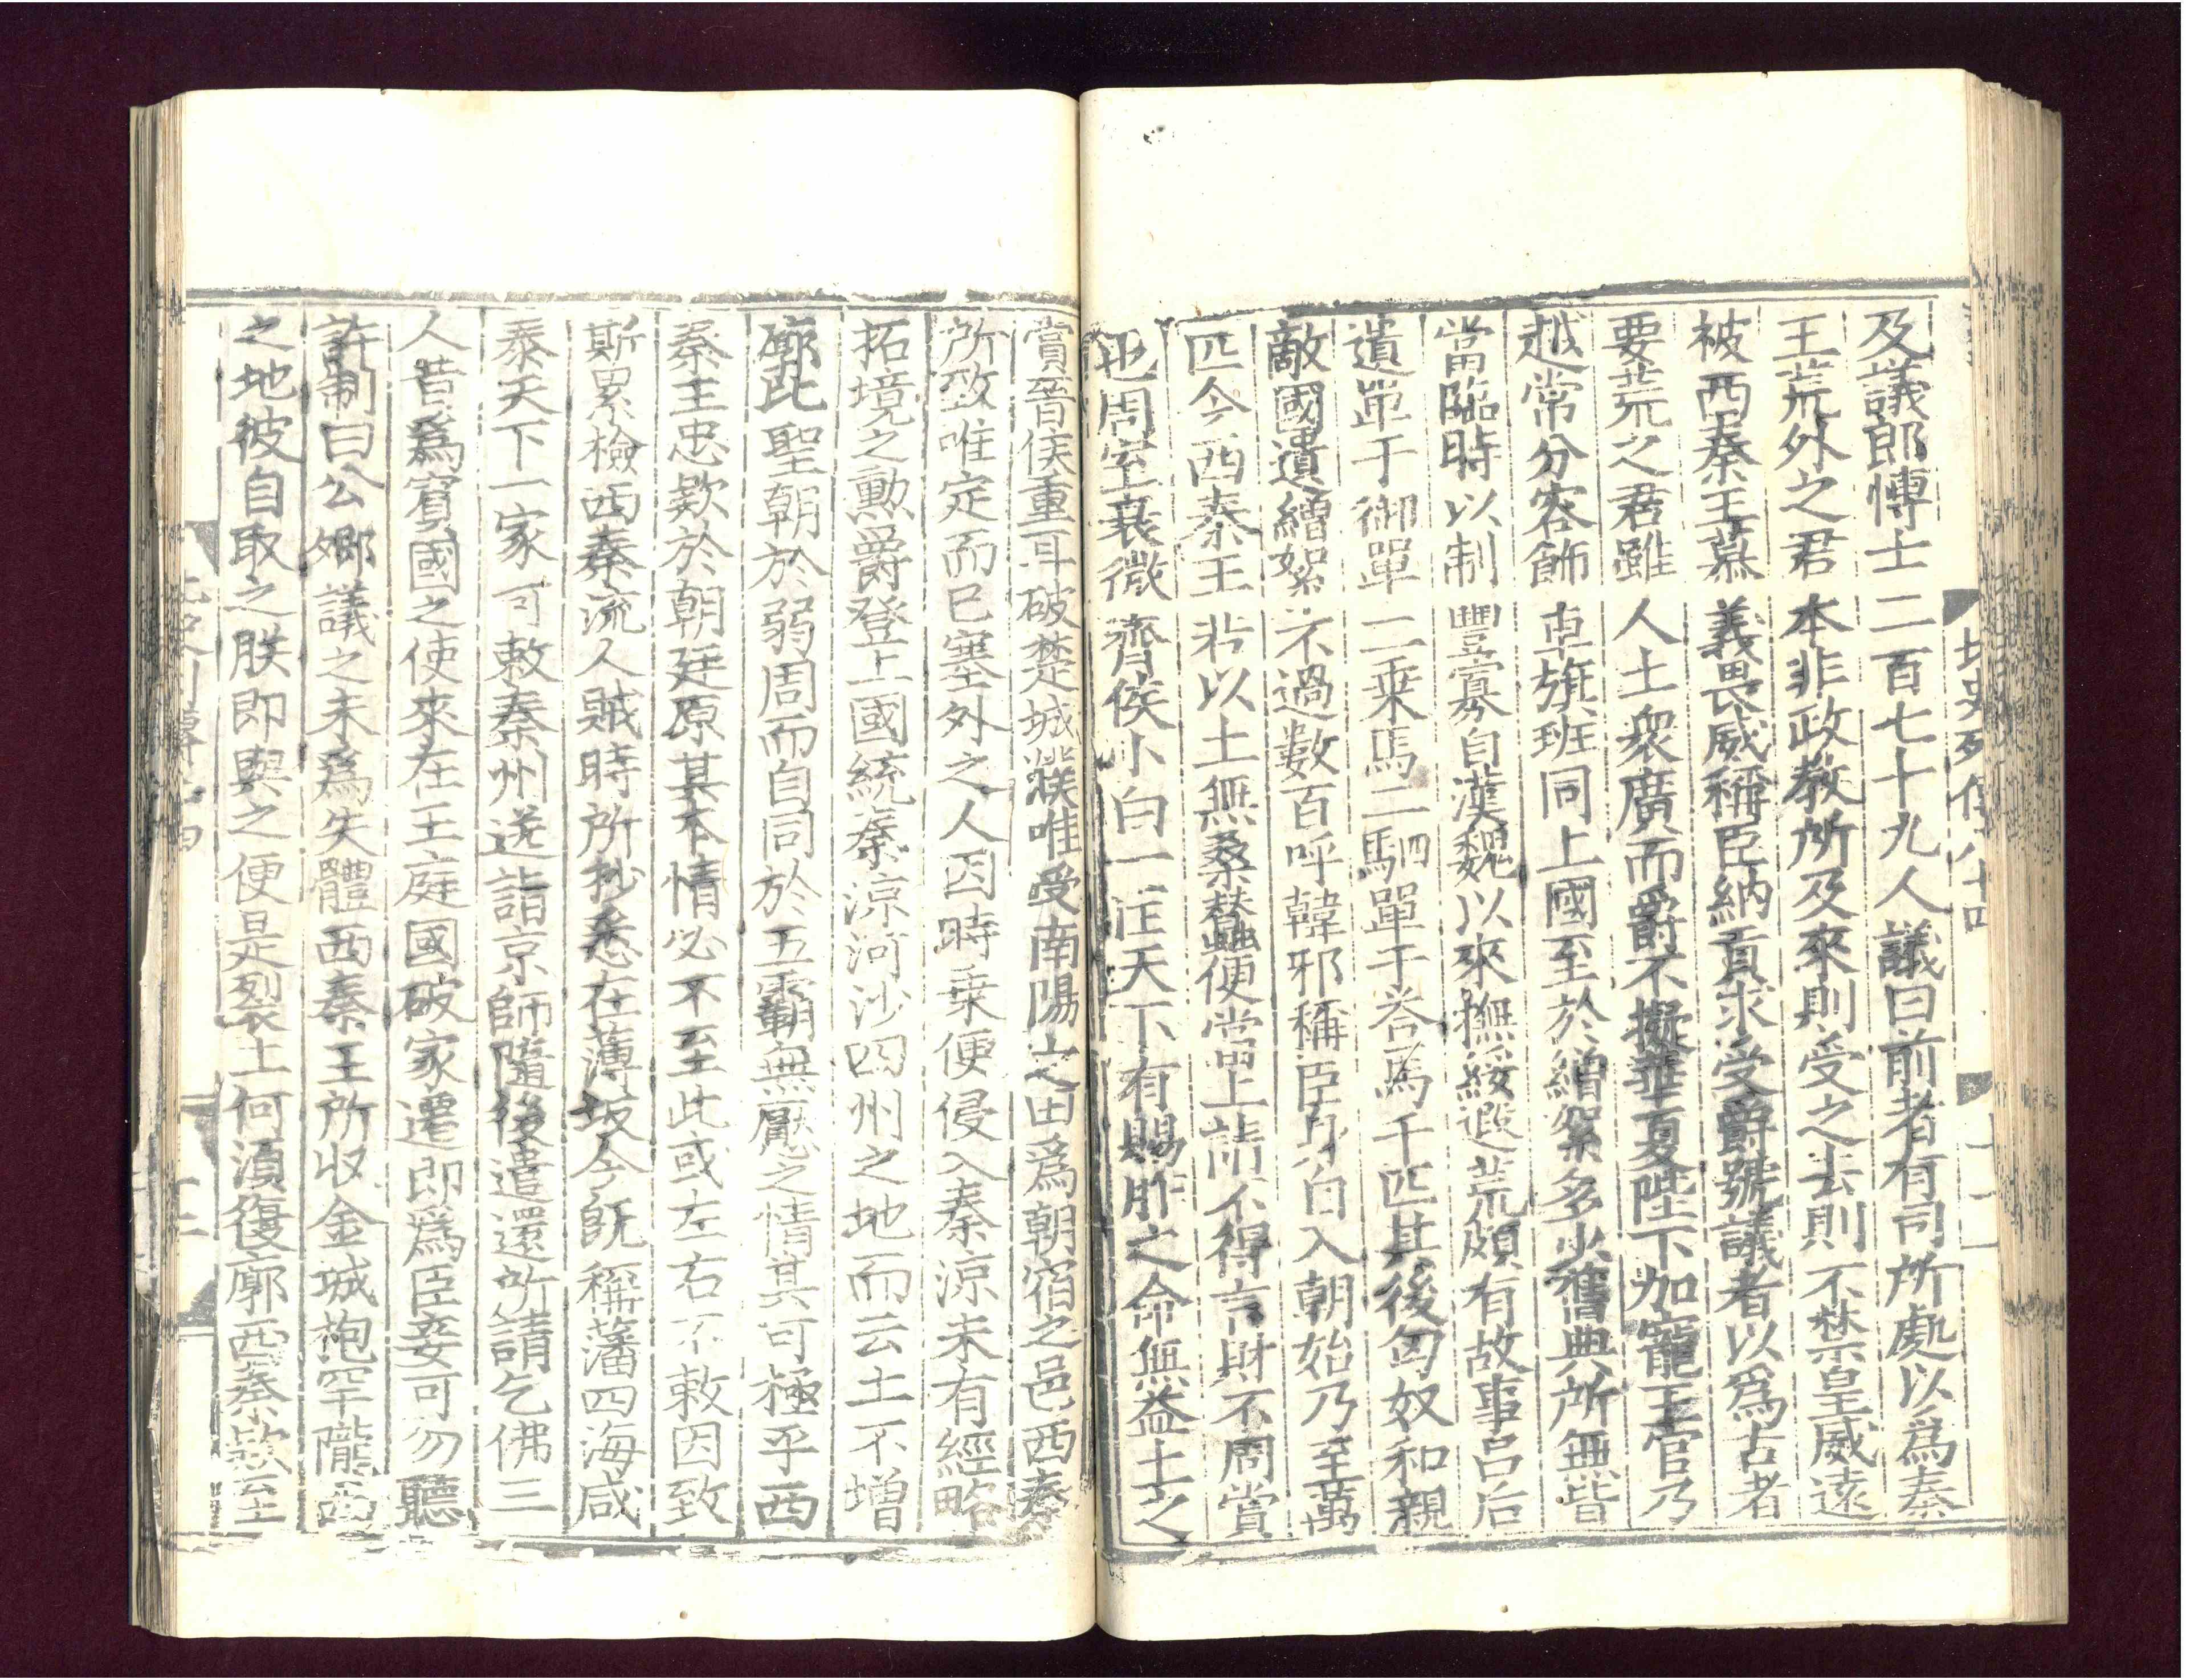 及議郎博士二百七十九人議曰前者有司所處以爲秦
王荒外之君本非政教所及來則受之去則不禁皇威遠
被西秦王慕義畏威稱臣納貢求受爵號議者以爲古者
要荒之君雖人土衆廣而爵不擬華夏陛下加寵王官乃
越常分容飾車旗班同上國至於繒絮多少舊典所無皆
當臨時以制豐寡自漢魏以來撫綏遐荒頗有故事呂后
遺單于御車二乗馬二駟單于荅馬千匹其後匈奴和親
敵國遺繒絮不過數百呼韓邪稱臣身自入朝始乃至萬
匹今西秦王若以土無桑蠶便當上請不得言財不周賞
也周室衰微齊侯小白一匡天下有賜胙之命無益土之
賞晉侯重耳破楚城濮唯受南陽之田爲朝宿之邑西秦
所致唯定而已塞外之人因時乗便侵入秦涼未有經略
拓境之勳爵登上國統秦涼河沙四州之地而云土不增
廓比聖朝於弱周而自同於五霸無厭之情其可極乎西
秦王忠款於朝廷原其本情必不至此或左右不敕因致
斯累檢西秦流人賊時所抄悉在蒲坂今旣稱藩四海咸
泰天下一家可敕秦州送詣京師隨後遣還所請乞佛三
人昔爲賓國之使來在王庭國破家遷即爲臣妾可勿聽
許制曰公卿議之未爲失體西秦王所收金城枹罕隴西
之地彼自取之朕即與之便是裂土何須復廓西秦款至
北史列傳八十四
十二